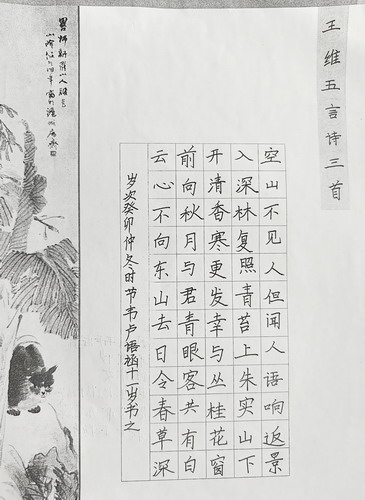 王维五言诗三首
空山不见人但闻人语响返景
入深林复照青苔上朱实山下
开清香寒更发幸与丛桂花窗
前向秋月与君青眼客共有白
云心不向东山去日令春草深
岁次癸卯仲冬时节韦卢语涵十一岁书之
师新罗山人